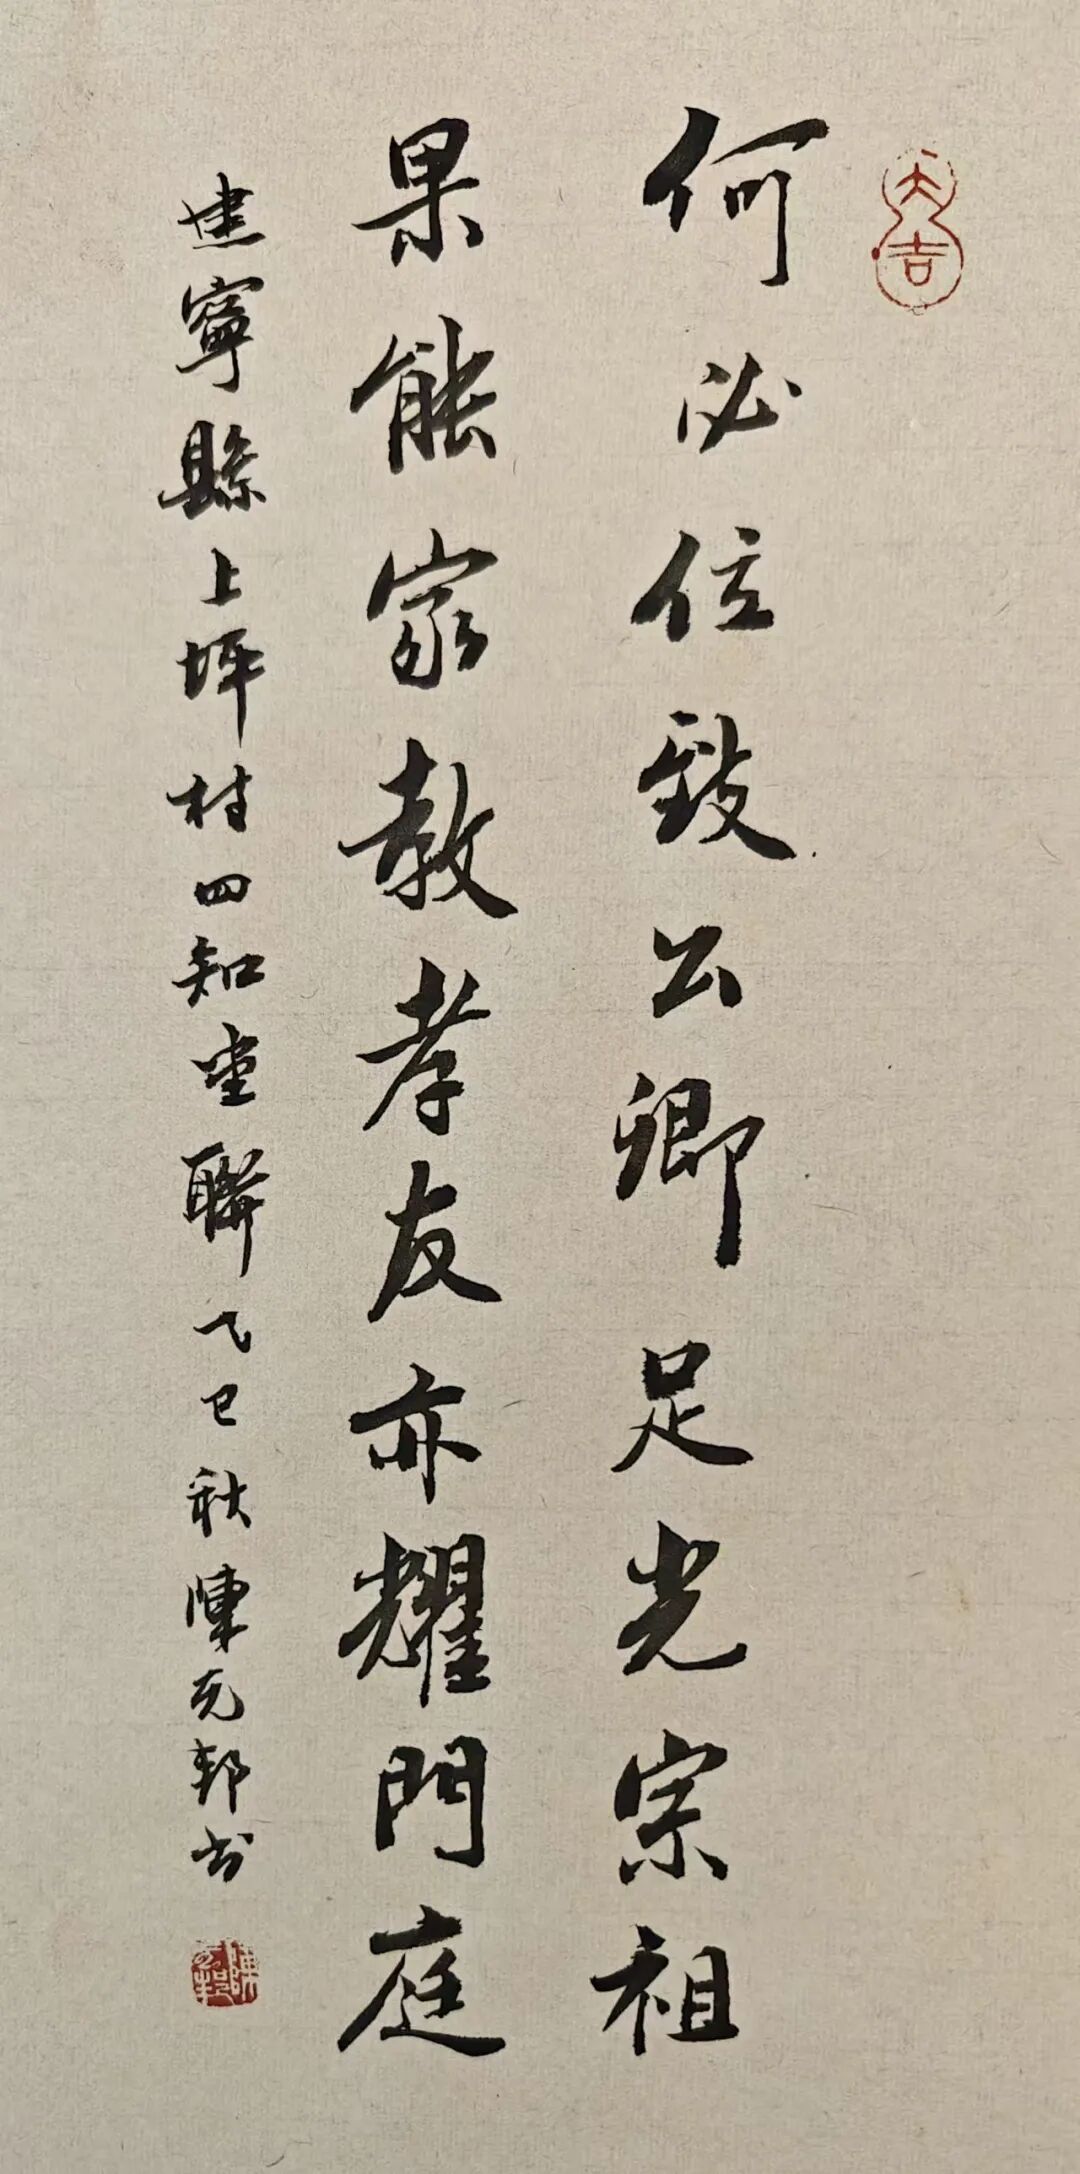 大吉
何必位致公卿足光宗祖
果能家教孝友亦耀門庭
建寧縣上坪村四知堂聯乙巳秋陳元邦书
陳元邦